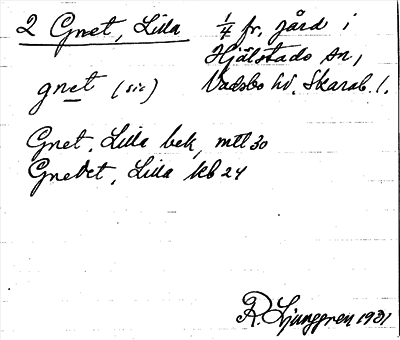 2 Gnet, Lilla
1/4 fr. jård i
Hjälstads sn,
gnet (sic)
Vadsbo hd. Skarab. l.
Gnet, Lilla bek, mtl 30
Gnetet, Lilla kb 24
R. Ljunggren 1931